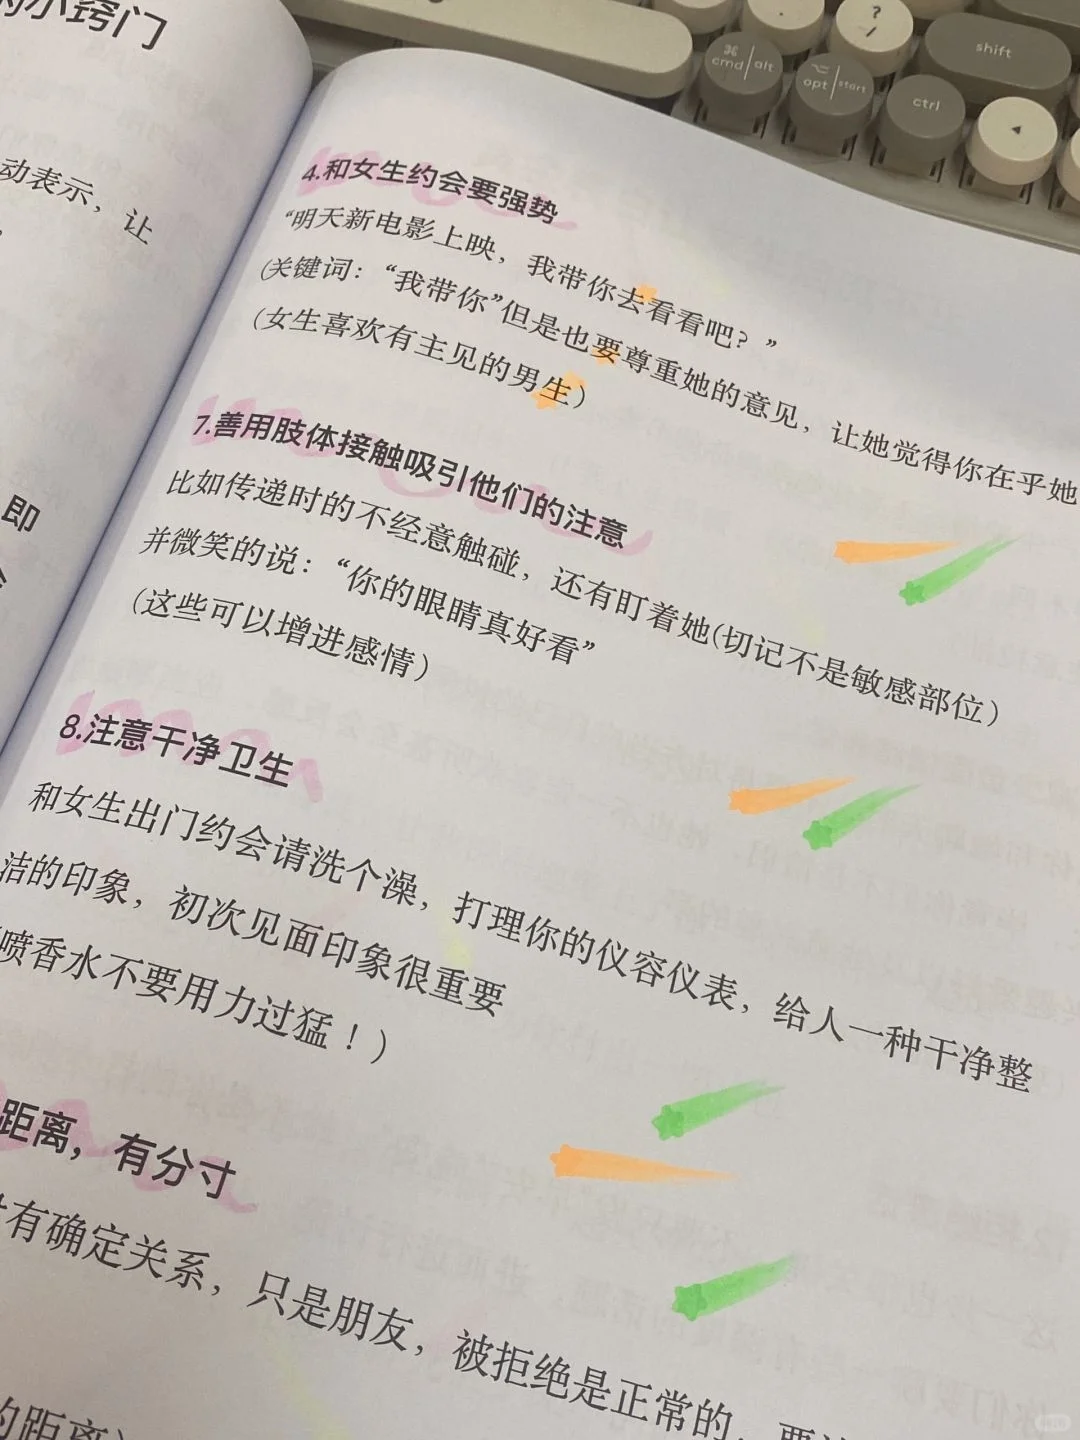 小窍门
动表示，让
即
cmd alt
opt start
ctrl
shift
?
/
4.和女生约会要强势
“明天新电影上映，我带你去看看吧？”
(关键词：“我带你”但是也要尊重她的意见，让她觉得你在乎她
(女生喜欢有主见的男生)
7.善用肢体接触吸引他们的注意
比如传递时的不经意触碰，还有盯着她(切记不是敏感部位)
并微笑的说：“你的眼睛真好看”
(这些可以增进感情)
8.注意干净卫生
和女生出门约会请洗个澡，打理你的仪容仪表，给人一种干净整
洁的印象，初次见面印象很重要
喷香水不要用力过猛！)
距离，有分寸
有确定关系，只是朋友，被拒绝是正常的，要
的距离)